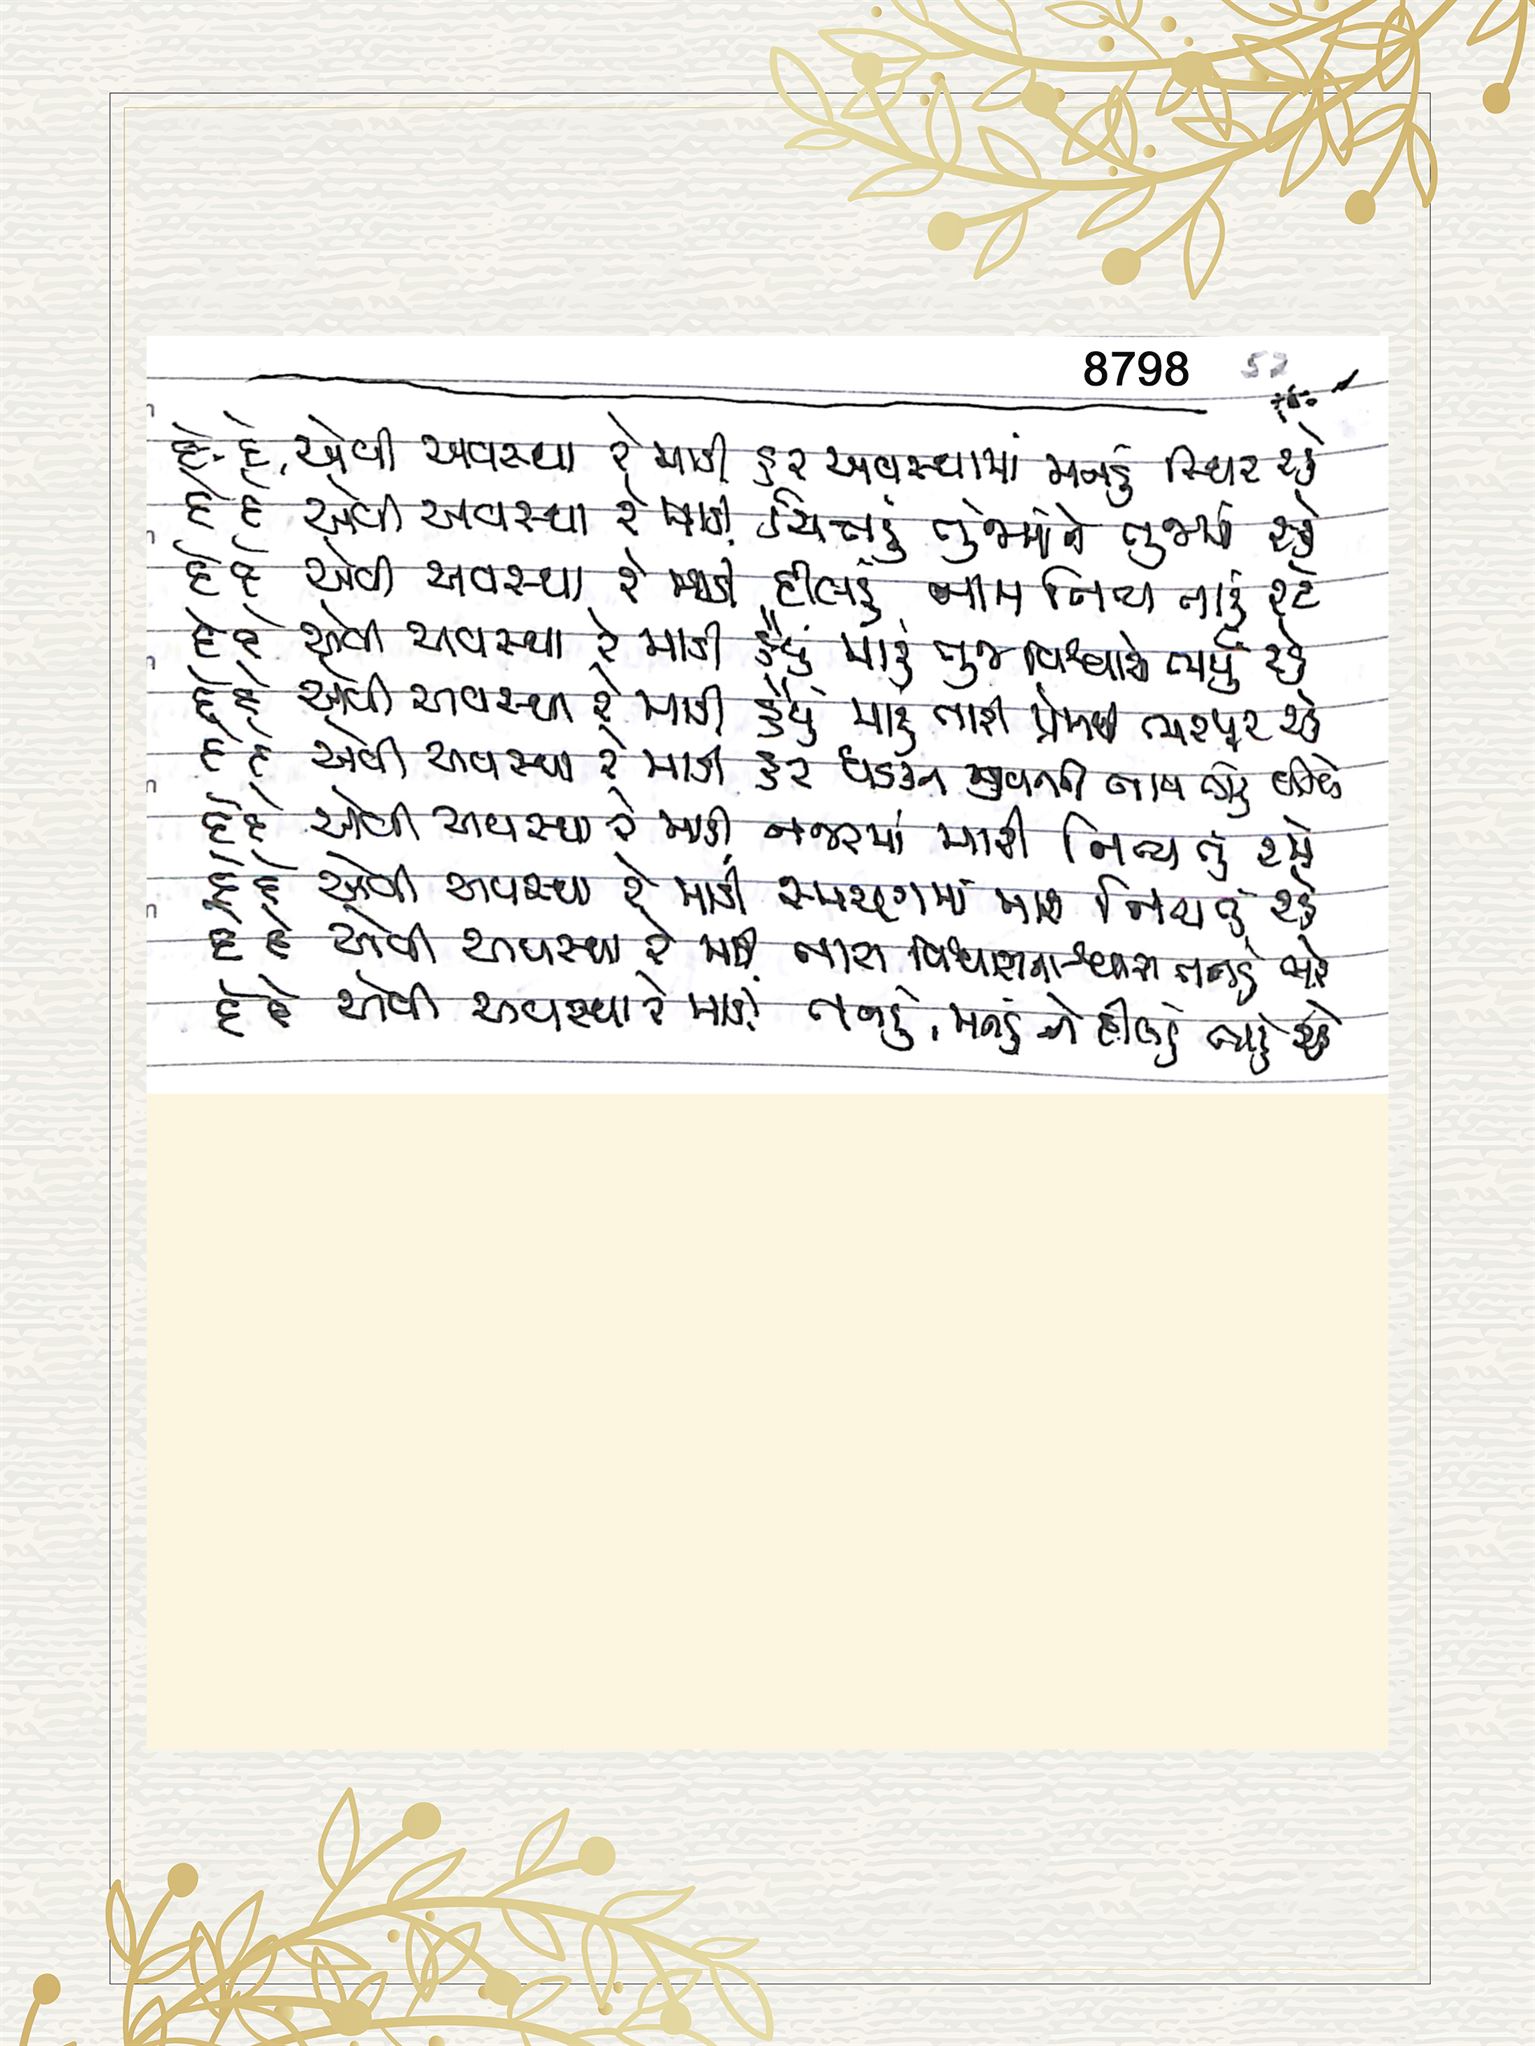 8798
દે-દે, એવી અવસ્થા રે માડી હર અવસ્થામાં મનડું સ્થિર રહે
દે દે એવી અવસ્થા રે માડી ચિત્તડું તુજમાં ને તુજમાં રહે
દે દે એવી અવસ્થા રે માડી દીલડું નામ નિત્ય તારું રટે
દે દે એવી અવસ્થા રે માડી હૈયું મારું તુજ વિશ્વાસે ભર્યું રહે
દે દે એવી અવસ્થા રે માડી હૈયું મારું તારા પ્રેમથી ભરપૂર રહે
દે દે એવી અવસ્થા રે માડી હર ધડકન જીવનની નામ તારું
દે દે એવી અવસ્થા રે માડી નજરમાં મારી નિત્ય તું રમે
દે દે એવી અવસ્થા રે માડી સ્મરણમાં મારા નિત્ય તું રહે
દે દે એવી અવસ્થા રે માડી તારા વિશ્વાસના શ્વાસ તનડું ભરે
દે દે એવી અવસ્થા રે માડી તનડું, મનડું ને દીલડું તારું રહે